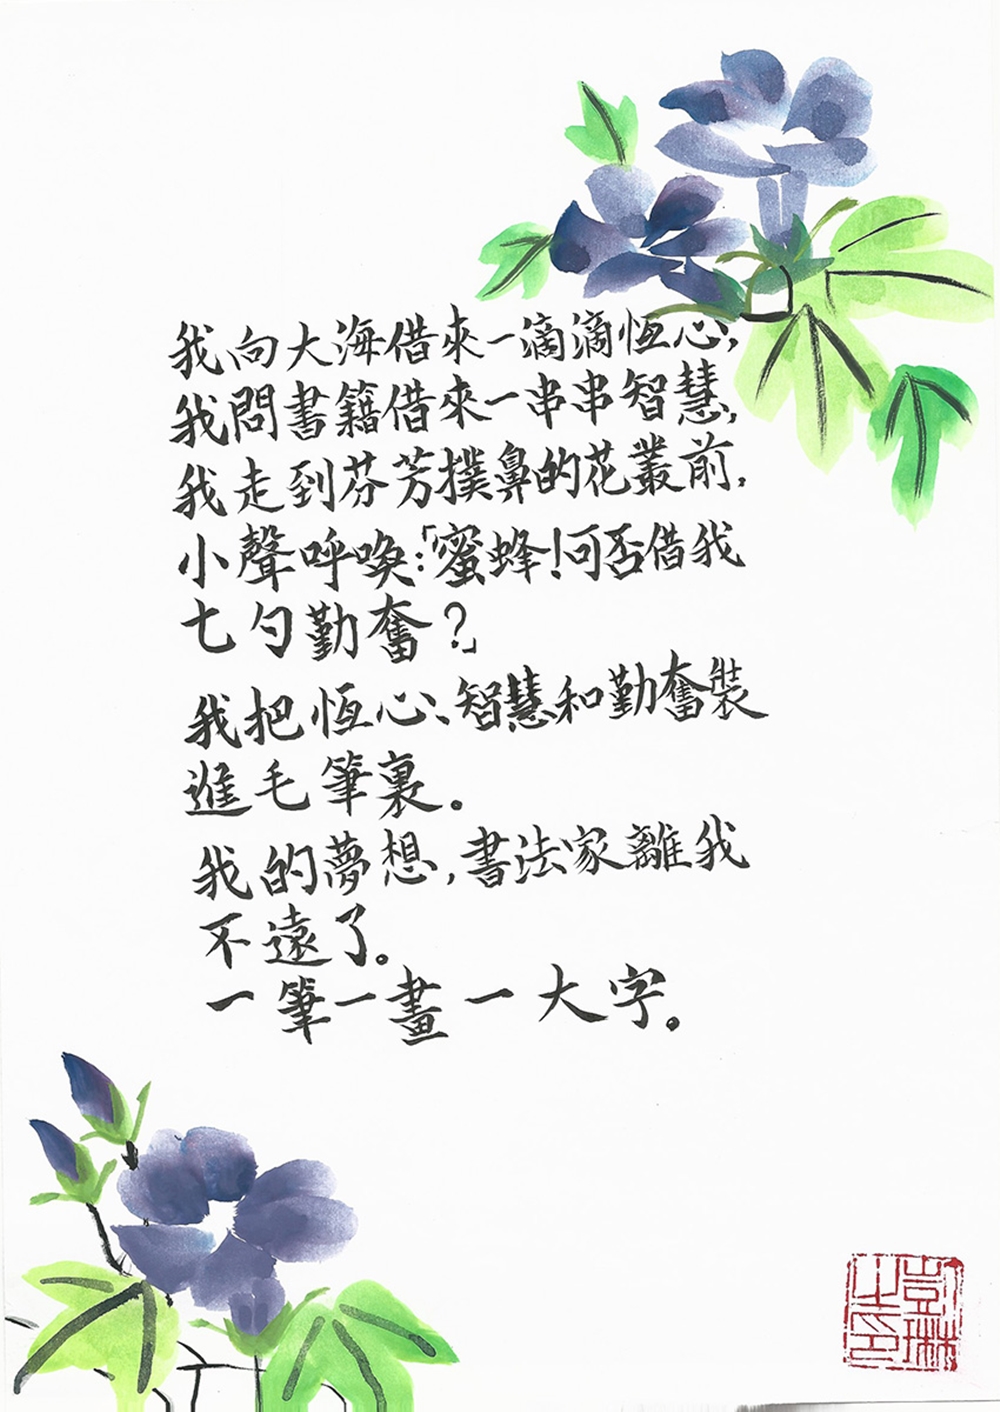 我向大海借來一滴滴恆心，
我問書籍借來一串串智慧，
我走到芬芳撲鼻的花叢前，
小聲呼喚：「蜜蜂！可否借我
七勺勤奮？」
我把恆心、智慧和勤奮裝
進毛筆裏。
我的夢想，書法家離我
不遠了。
一筆一畫一大字。
凱琳
之印